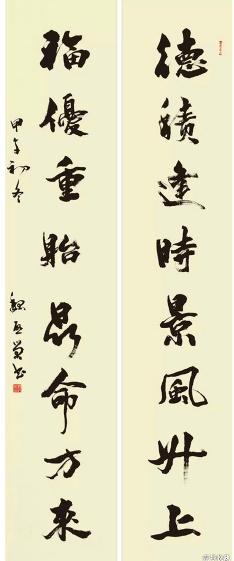 德積逢時景風升上
福優重貽鼎命方來
甲午初冬